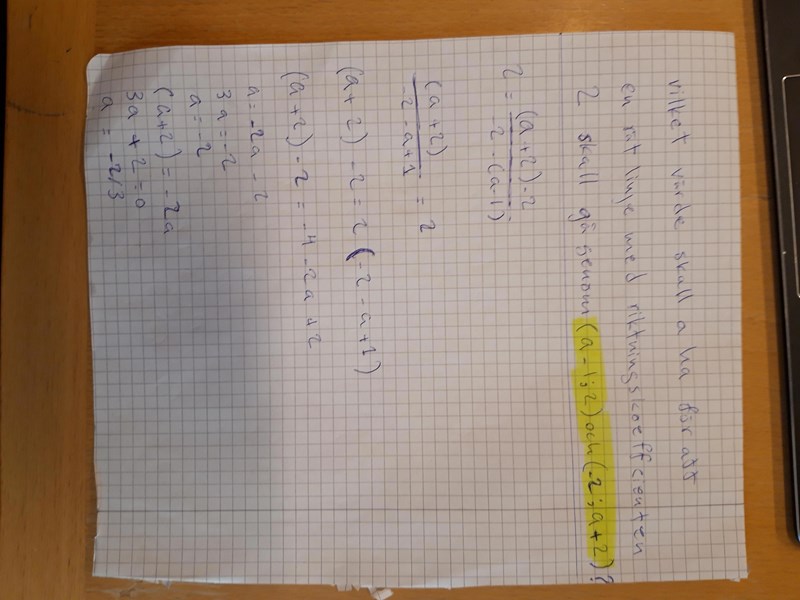 vilket värde skall a ha för att
en rät linje med riktningskoefficienten
2 skall gå genom (a-1;2) och (-2;a+2)?
2 = (a+2)-2 / -2-(a-1)
(a+2) / -2-a+1 = 2
(a+2) -2 = 2 (-2-a+1)
(a+2) -2 = -4 -2a +2
a = -2a -2
3a = -2
a = -2
(a+2) = -2a
3a +2 = 0
a = -2/3